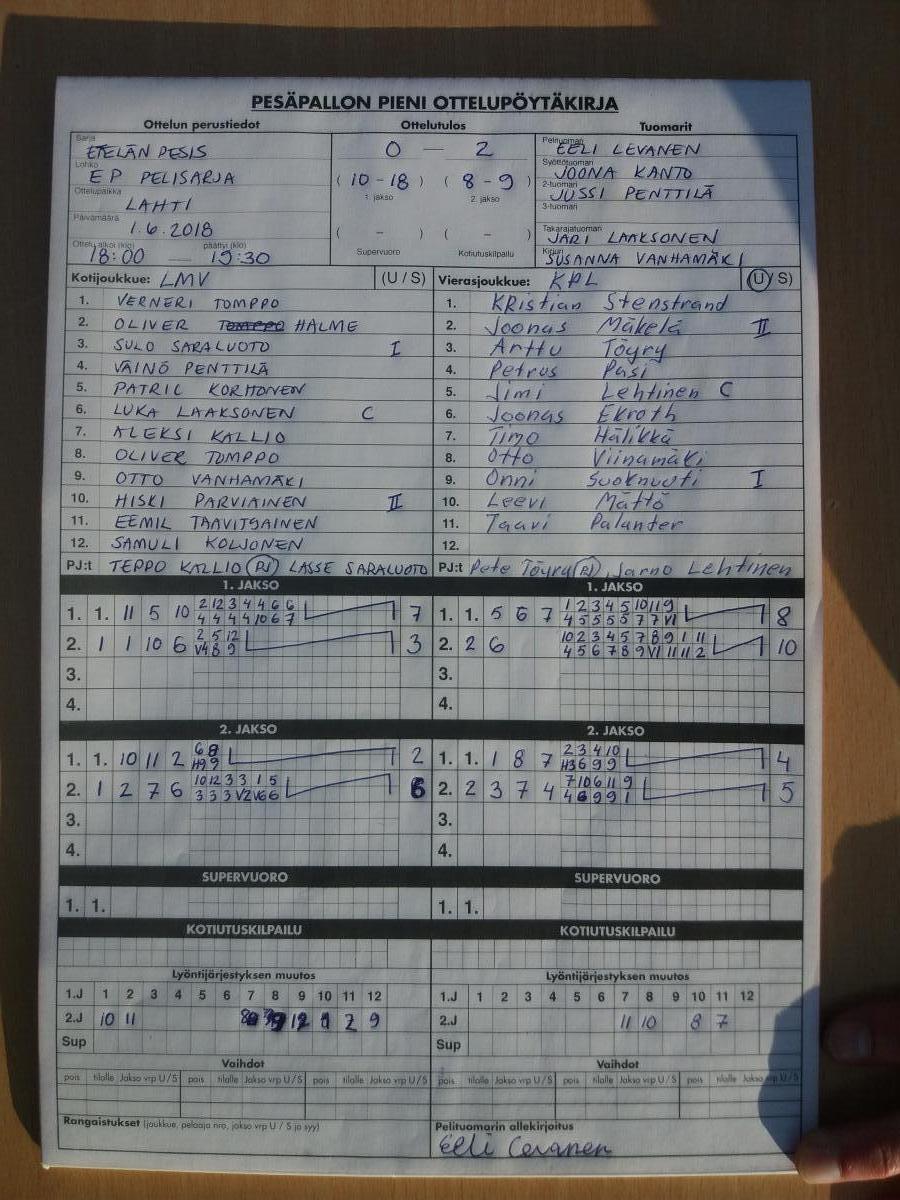 PESÄPALLON PIENI OTTELUPÖYTÄKIRJA
Ottelun perustiedot Ottelutulos Tuomarit
Sarja ETELÄN PESIS
Lohko EP PELISARJA
Ottelupaikka LAHTI
Päivämäärä 1.6.2018
Ottelu alkoi (klo) päättyi (klo)
18:00 — 19:30
0 — 2
(10-18) (8-9)
1. jakso 2. jakso
( - ) ( - )
Supervuoro Kotiutuskilpailu
Pelituomari EELI LEVANEN
Syöttötuomari JOONA KANTO
2-tuomari JUSSI PENTTILÄ
3-tuomari
Takarajatuomari JARI LAAKSONEN
Kirjuri SUSANNA VANHAMÄKI
Kotijoukkue: LMV (U / S) Vierasjoukkue: KPL (U / S)
1. VERNERI TOMPPO 1. KRistian Stenstrand
2. OLIVER HALME 2. Joonas Mäkelä II
3. SULO SARALUOTO I 3. Arttu Töyry
4. VÄINÖ PENTTILÄ 4. Petrus Pasi
5. PATRIC KORHONEN 5. Jimi Lehtinen C
6. LUKA LAAKSONEN C 6. Joonas Ekroth
7. ALEKSI KALLIO 7. Timo Hälikkä
8. OLIVER TOMPPO 8. Otto Viinamäki
9. OTTO VANHAMÄKI 9. Onni Suoknuuti I
10. HISKI PARVIAINEN II 10. Leevi Mättö
11. EEMIL TAAVITSAINEN 11. Taavi Palander
12. SAMULI KOLJONEN 12.
PJ:t TEPPO KALLIO (PJ) LASSE SARALUOTO PJ:t Pete Töyry (PJ), Jarno Lehtinen
1. JAKSO 1. JAKSO
1. 1. 11 5 10 2 12 3 4 4 6 6 7 1. 1. 5 6 7 1 2 3 4 5 10 11 9 8
4 4 4 4 10 6 7 4 5 5 5 5 7 7 VI
2. 1 1 10 6 2 5 12 3 2. 2 6 10 2 3 4 5 7 8 9 1 11 10
V4 8 9 4 5 6 7 8 9 VI 11 11 2
3. 3.
4. 4.
2. JAKSO 2. JAKSO
1. 1. 10 11 2 6 8 2 1. 1. 1 8 7 2 3 4 10 4
H9 9 H3 6 9 9
2. 1 2 7 6 10 12 3 3 1 5 6 2. 2 3 7 4 7 10 6 11 9 5
3 3 3 V2 V6 6 4 6 9 9 1
3. 3.
4. 4.
SUPERVUORO SUPERVUORO
1. 1. 1. 1.
KOTIUTUSKILPAILU KOTIUTUSKILPAILU
Lyöntijärjestyksen muutos Lyöntijärjestyksen muutos
1.J 1 2 3 4 5 6 7 8 9 10 11 12 1.J 1 2 3 4 5 6 7 8 9 10 11 12
2.J 10 11 12 1 2 9 2.J 11 10 8 7
Sup Sup
Vaihdot Vaihdot
pois tilalle Jakso vrp U / S pois tilalle Jakso vrp U / S pois tilalle Jakso vrp U / S pois tilalle Jakso vrp U / S pois tilalle Jakso vrp U / S pois tilalle Jakso vrp U / S
Rangaistukset (joukkue, pelaaja nro, jakso vrp U / S ja syy) Pelituomarin allekirjoitus
Eeli Levanen